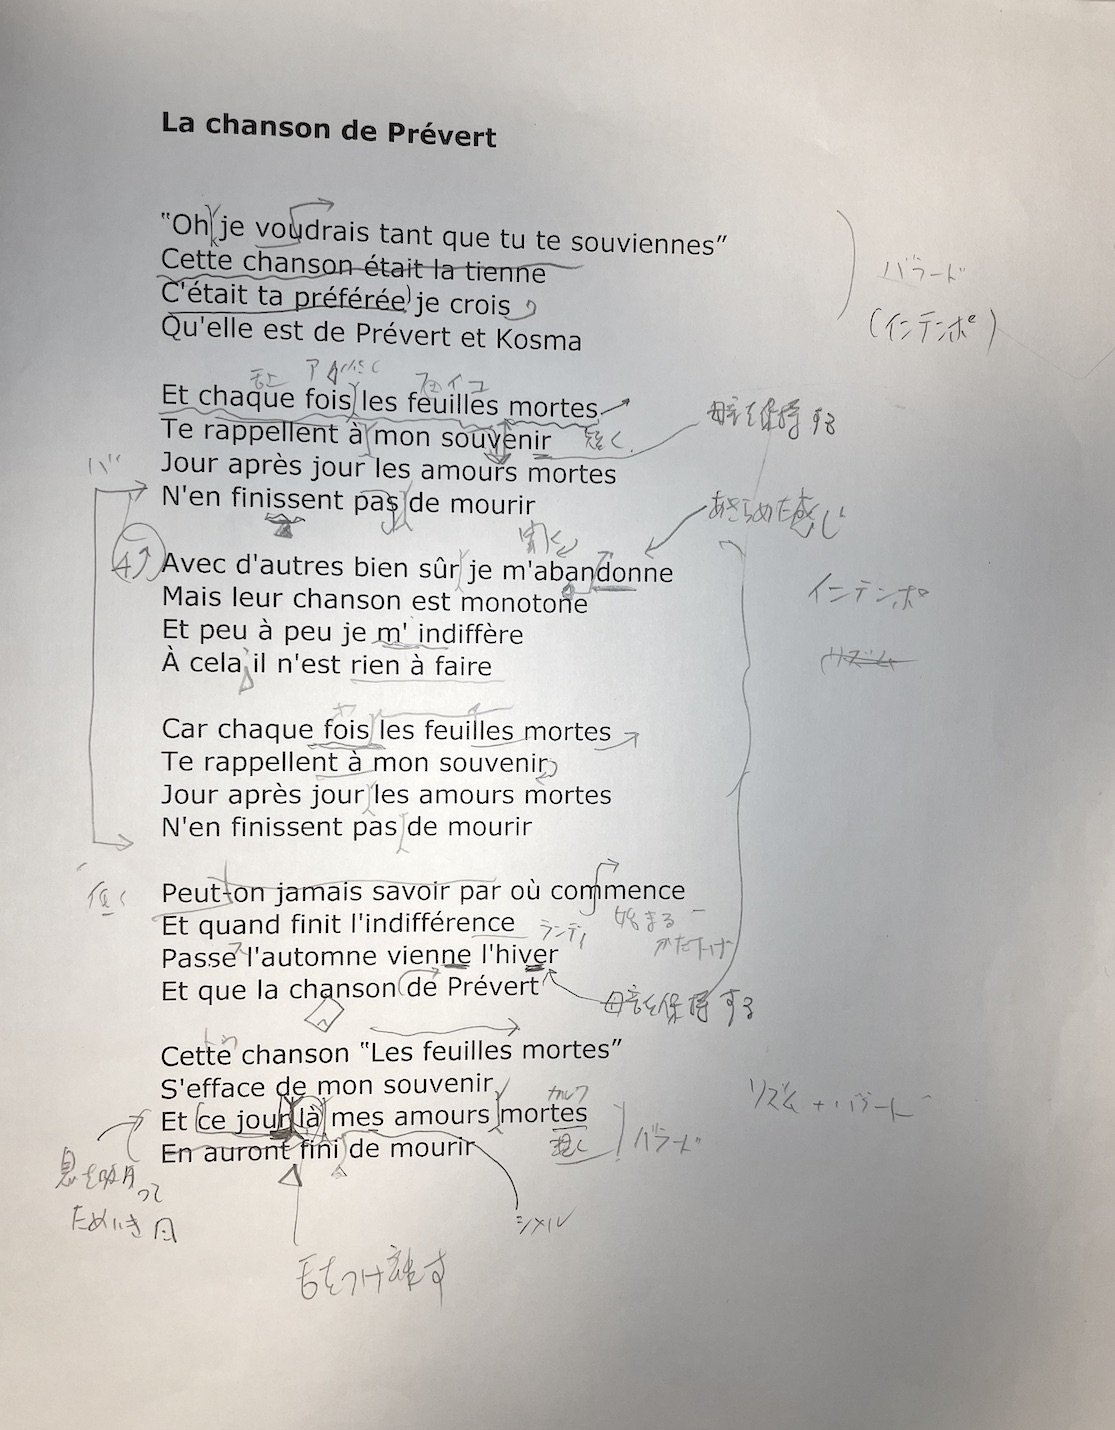 La chanson de Prévert
"Oh je voudrais tant que tu te souviennes"
Cette chanson était la tienne
バラード
C'était ta préférée je crois
(インテンポ)
Qu'elle est de Prévert et Kosma
Et chaque fois les feuilles mortes
母音を保持する
Te rappellent à mon souvenir
短く
Jour après jour les amours mortes
バ
N'en finissent pas de mourir
あきらめた感じ
Avec d'autres bien sûr je m'abandonne
インテンポ
Mais leur chanson est monotone
Et peu à peu je m' indiffère
À cela il n'est rien à faire
リズム
Car chaque fois les feuilles mortes
Te rappellent à mon souvenir
Jour après jour les amours mortes
N'en finissent pas de mourir
低く
Peut-on jamais savoir par où commence
Et quand finit l'indifférence
始まる
Passe l'automne vienne l'hiver
Et que la chanson de Prévert
母音を保持する
Cette chanson "Les feuilles mortes"
S'efface de mon souvenir
リズム + バラード
Et ce jour là mes amours mortes
En auront fini de mourir
バラード
息を吸って
ためいき
シメル
舌をつけ離す